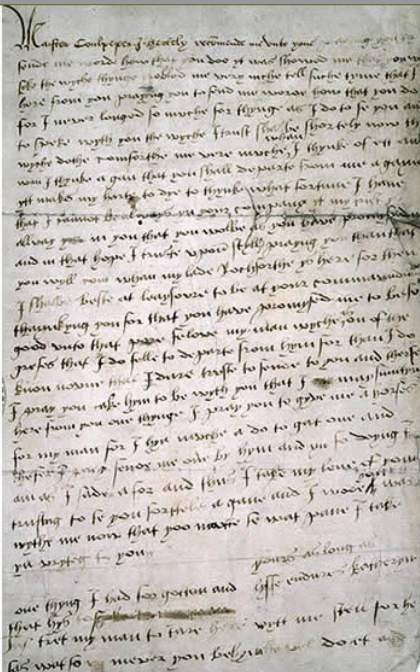 Maister Coulpeper I hertely recomend me unto youe praying you to
sende me worde how that you doo yt was showed me that you was
seke the wyche thynge trobled me very muche tell suche tyme that I
here from you praying you to send me worde how that you do
for I never longed so muche for thynge as I do to se you and
to speke wyth you the wyche I trust shalbe shortely now the
wyche dothe comforthe me very muche whan I thynke of ett and
wan I thynke a gan that you shall departe from me a gayne
ytt makes my harte to dye to thynke what fortune I have
that I cannot be always yn your company yt my trust ys
allway in you that you wolbe as you have promysed me
and in that hope I truste upon styll praying you than that
you wyll com whan my lade Rochforthe ys here for then
I shalbe beste at leaysoure to be at your commarendmant
thankyng you for that you have promysed me to be so
good unto that pore felowe my man wyche on of the
grefes that I do felle to departe from hym for than I do
know noone that I dare truste to sende to you and therfor
I pray you take hym to be wyth you that I may sumtym
here from you one thynge I pray you to gyve me a horse
for my man for I hyd muche a do to gat one and
thefer I pray sende me one by hym and yn so doying I
am as I sade afor and thus I take my leve of you
trusting to se you sorttele a gane and I wode you was
wythe me now that yoo maythe se wat pane I take
yn wryteg to you
yours as long as
lyffe endures Katheryn
one thyng I had forgotten and
that hys to
tret my man to tare here wytt me still for he
sas watso mever you bed hym he wyll do et and